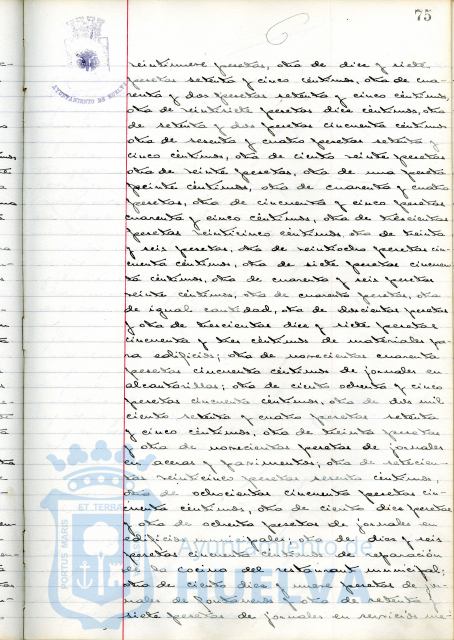 75
AYUNTAMIENTO DE HUELVA
veintinueve pesetas, otra de diez y siete
pesetas setenta y cinco céntimos, otra de cua-
renta y dos pesetas setenta y cinco céntimos,
otra de veintisiete pesetas diez céntimos, otra
de setenta y dos pesetas cincuenta céntimos
otra de sesenta y cuatro pesetas setenta y
cinco céntimos, otra de ciento veinte pesetas
otra de veinte pesetas, otra de una peseta
treinta céntimos, otra de cuarenta y cuatro
pesetas, otra de cincuenta y cinco pesetas
cuarenta y cinco céntimos, otra de trescientas
pesetas veinticinco céntimos, otra de treinta
y seis pesetas, otra de veintiocho pesetas cin-
cuenta céntimos, otra de siete pesetas cincuen-
ta céntimos, otra de cuarenta y seis pesetas
veinte céntimos, otra de cuarenta pesetas, otra
de igual cantidad, otra de doscientas pesetas
y otra de trescientas diez y siete pesetas
cincuenta y tres céntimos de materiales pa-
ra edificios; otra de novecientas cuarenta
pesetas cincuenta céntimos de jornales en
alcantarillas; otra de ciento ochenta y cinco
pesetas cincuenta céntimos, otra de dos mil
ciento setenta y cuatro pesetas setenta
y cinco céntimos, otra de treinta pesetas
y otra de novecientas pesetas de jornales
en aceras y pavimentos; otra de setecien-
tas veinticinco pesetas sesenta céntimos,
otra de ochocientas cincuenta pesetas cin-
cuenta céntimos, otra de ciento diez pesetas
y otra de ochenta pesetas de jornales en
edificios municipales; otra de diez y seis
pesetas cincuenta céntimos de reparación
de la cocina del restaurant municipal;
otra de ciento diez y nueve pesetas de jor-
nales de fontaneros y otra de setenta y
siete pesetas de jornales en servicios me-
PORTUS MARIS ET TERRAE
Ayuntamiento de
HUELVA